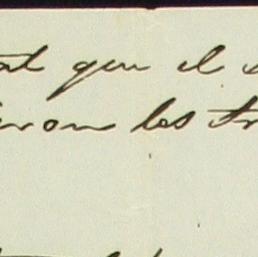 at que el
eron los tr